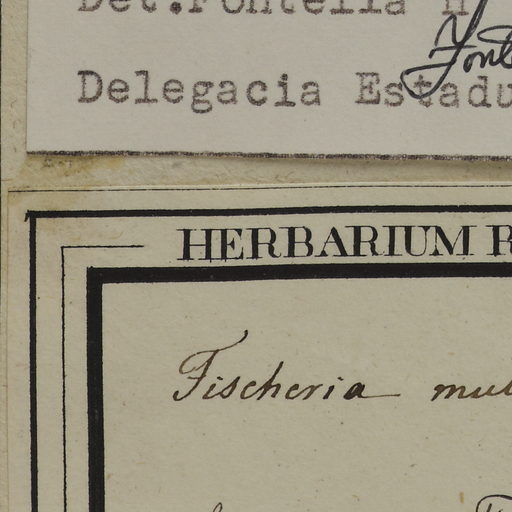 Det. Fontella
Delegacia Estadu
HERBARIUM R
Fischeria mul